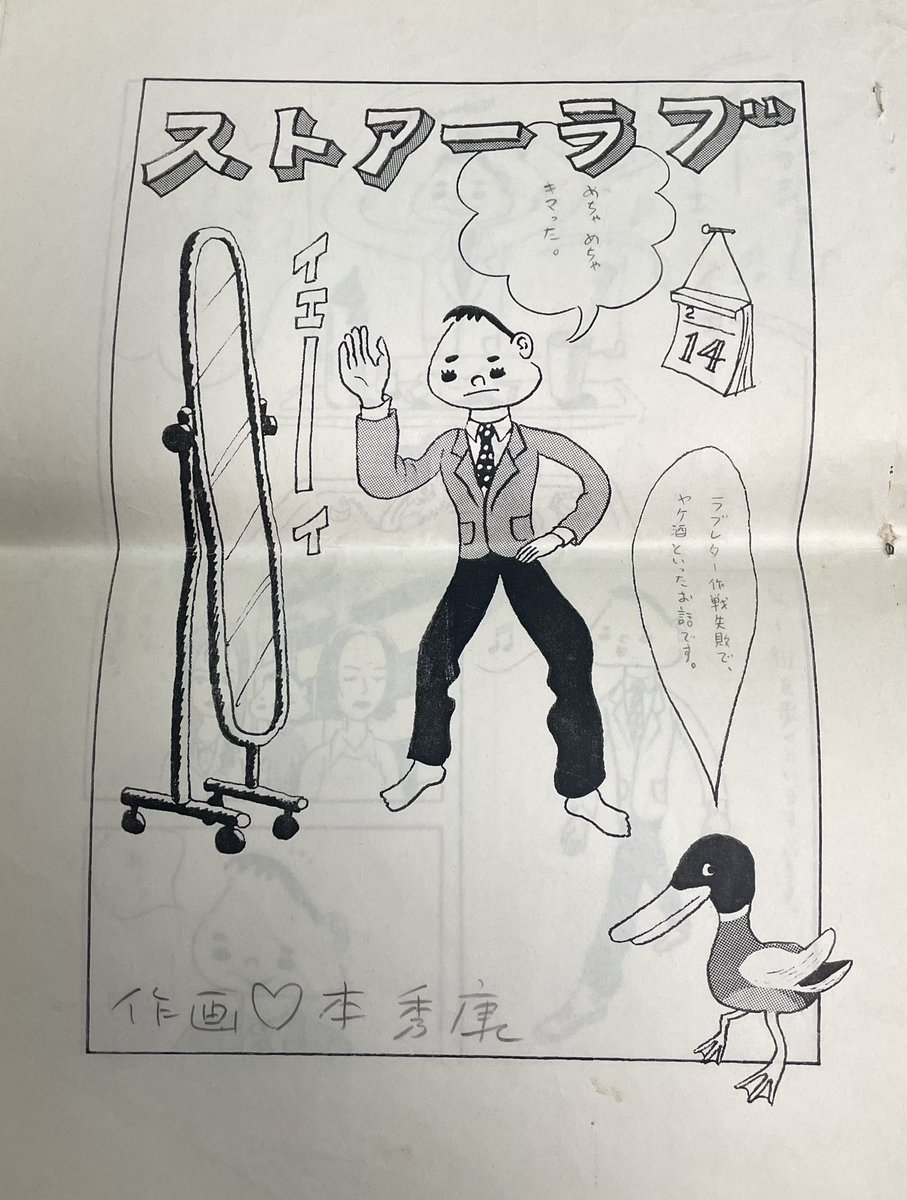 ストアーラブ
めちゃめちゃ
キマった。
イエーイ
2
14
ラブレター作戦失敗で、
ヤケ酒といったお話です。
作画♡本秀康